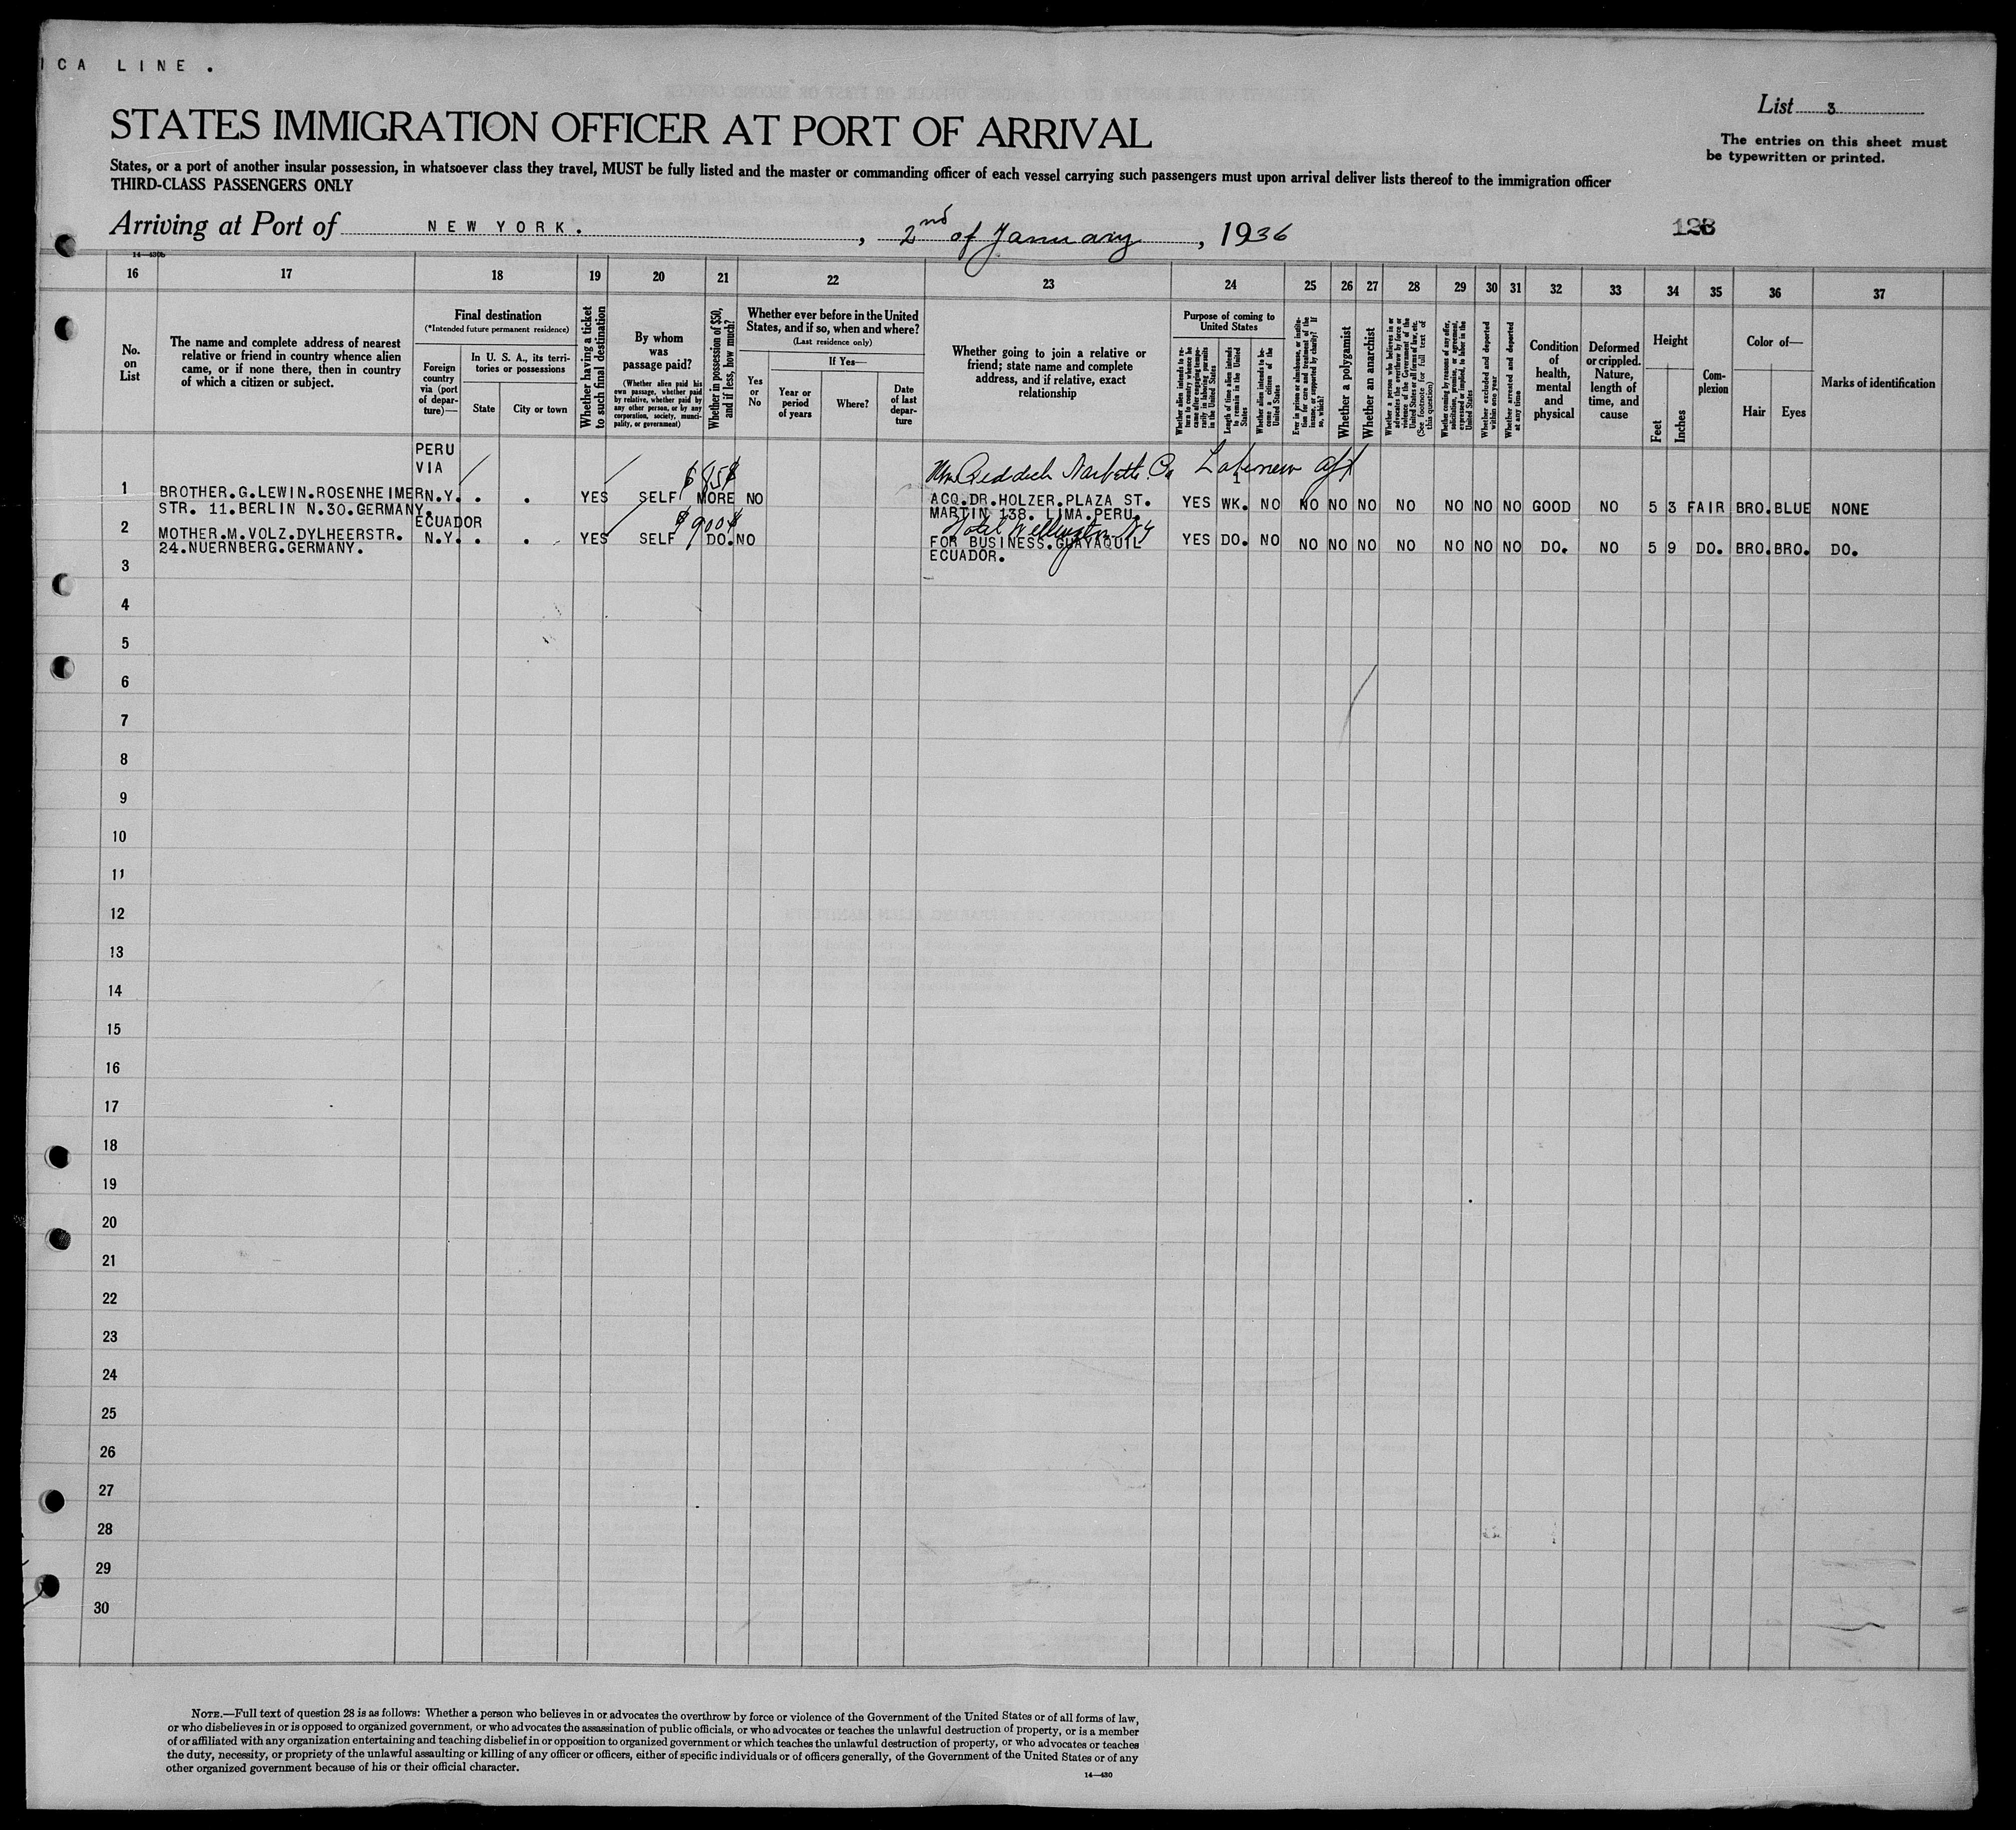 ICA LINE.
List 3
STATES IMMIGRATION OFFICER AT PORT OF ARRIVAL
The entries on this sheet must
be typewritten or printed.
States, or a port of another insular possession, in whatsoever class they travel, MUST be fully listed and the master or commanding officer of each vessel carrying such passengers must upon arrival deliver lists thereof to the immigration officer
THIRD-CLASS PASSENGERS ONLY
Arriving at Port of NEW YORK. , 2nd of January , 1936
128
14—430b
16 17 18 19 20 21 22 23 24 25 26 27 28 29 30 31 32 33 34 35 36 37
No.
on
List
The name and complete address of nearest
relative or friend in country whence alien
came, or if none there, then in country
of which a citizen or subject.
Final destination
(*Intended future permanent residence)
Foreign
country
via (port
of depar-
ture)—
In U. S. A., its terri-
tories or possessions
State
City or town
Whether having a ticket
to such final destination
By whom
was
passage paid?
(Whether alien paid his
own passage, whether paid
by relative, whether paid by
any other person, or by any
corporation, society, munci-
pality, or government)
Whether in possession of $50,
and if less, how much?
Whether ever before in the United
States, and if so, when and where?
(Last residence only)
Yes
or
No
If Yes—
Year or
period
of years
Where?
Date
of last
depar-
ture
Whether going to join a relative or
friend; state name and complete
address, and if relative, exact
relationship
Purpose of coming to
United States
Whether alien intends to re-
turn to country whence he
came after engaging tempo-
rarily in laboring pursuits
in the United States
Length of time alien intends
to remain in the United
States
Whether alien intends to be-
come a citizen of the
United States
Ever in prison or almshouse, or institu-
tion for care and treatment of the
insane, or supported by charity? If
so, which?
Whether a polygamist
Whether an anarchist
Whether a person who believes in or
advocates the overthrow by force or
violence of the Government of the
United States or all forms of law, etc.
(See footnote for full text of
this question)
Whether coming by reasons of any offer,
solicitation, promise, or agreement,
expressed or implied, to labor in the
United States
Whether excluded and deported
within one year
Whether arrested and deported
at any time
Condition
of
health,
mental
and
physical
Deformed
or crippled.
Nature,
length of
time, and
cause
Height
Feet
Inches
Com-
plexion
Color of—
Hair
Eyes
Marks of identification
PERU
VIA
1 BROTHER.G.LEWIN.ROSENHEIMER N.Y. . . YES SELF MORE NO ACQ.DR.HOLZER.PLAZA ST. YES 1 WK. NO NO NO NO NO NO NO NO GOOD NO 5 3 FAIR BRO. BLUE NONE
STR. 11.BERLIN N.30.GERMANY. MARTIN 138. LIMA.PERU.
ECUADOR $900
2 MOTHER.M.VOLZ.DYLHEERSTR. N.Y. . . YES SELF DO. NO Hotel Wellington NY FOR BUSINESS.GUAYAQUIL YES DO. NO NO NO NO NO NO NO NO DO. NO 5 9 DO. BRO. BRO. DO.
24.NUERNBERG.GERMANY. ECUADOR.
3
4
5
6
7
8
9
10
11
12
13
14
15
16
17
18
19
20
21
22
23
24
25
26
27
28
29
30
NOTE.—Full text of question 28 is as follows: Whether a person who believes in or advocates the overthrow by force or violence of the Government of the United States or of all forms of law,
or who disbelieves in or is opposed to organized government, or who advocates the assassination of public officials, or who advocates or teaches the unlawful destruction of property, or is a member
of or affiliated with any organization entertaining and teaching disbelief in or opposition to organized government or which teaches the unlawful destruction of property, or who advocates or teaches
the duty, necessity, or propriety of the unlawful assaulting or killing of any officer or officers, either of specific individuals or of officers generally, of the Government of the United States or of any
other organized government because of his or their official character.
14—430